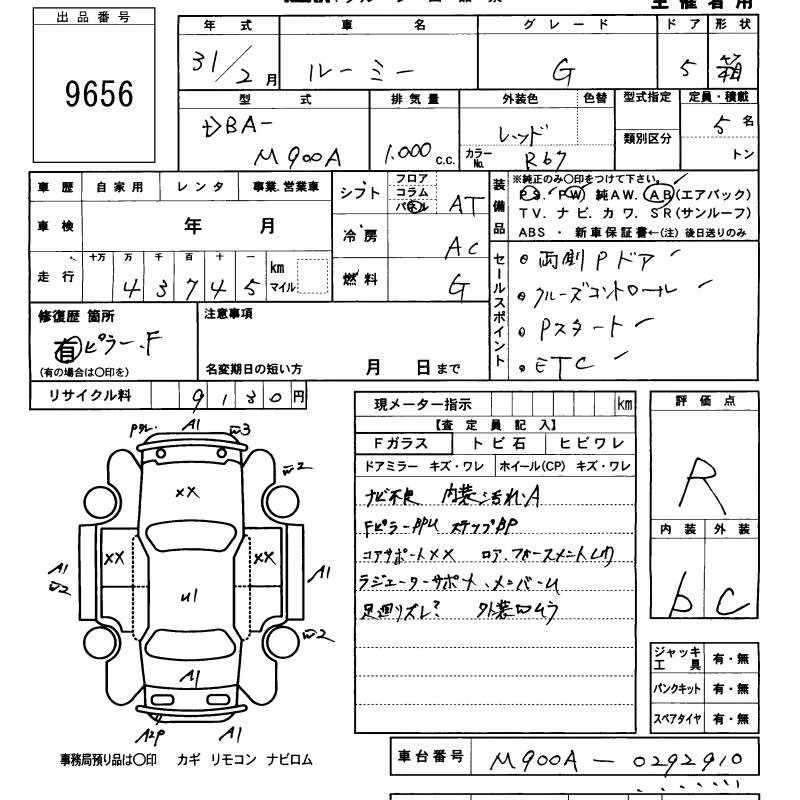 出品番号
9656
年式 車名 グレード ドア 形状
31/2月 ルーミー G 5 箱
型式 排気量 外装色 色替 型式指定 定員・積載
DBA- M900A 1.000 c.c. レッド カラーNo. R67 類別区分 5名 トン
車歴 自家用 レンタ 事業.営業車
車検 年 月
走行 十万 万 千 百 十 一 km マイル
4 3 7 4 5
シフト フロア コラム パネル AT
冷房 AC
燃料 G
装備品
※純正のみ〇印をつけて下さい。
PS. PW 純AW. AB(エアバック)
TV. ナビ. カワ. SR(サンルーフ)
ABS ・ 新車保証書←(注) 後日送りのみ
セールスポイント
両側Pドア
クルーズコントロール
Pスタート
ETC
修復歴 箇所
有 ピラー.F
(有の場合は〇印を)
注意事項
名変期日の短い方 月 日まで
リサイクル料 9130円
現メーター指示 km
【査定員記入】
Fガラス トビ石 ヒビワレ
ドアミラー キズ・ワレ ホイール(CP) キズ・ワレ
ナビ不良 内装汚れA
Fピラー ステップ
コアサポートXX
ラジエーターサポート、メンバー
足廻りズレ? 外装切ムラ
評価点
R
内装 外装
b C
ジャッキ工具 有・無
パンクキット 有・無
スペアタイヤ 有・無
A1
XX
XX XX
A1 U1 A1
A1
A1
事務局預り品は〇印 カギ リモコン ナビロム
車台番号 M900A-0292910